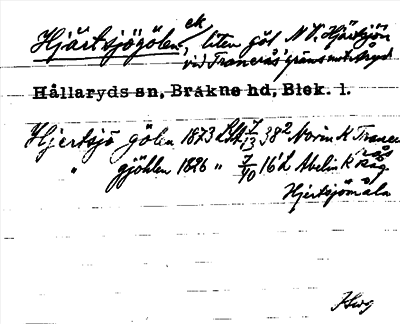 Hjärtsjögölen, ek liten göl N V. Hjärtsjön
vid Tranerås' gräns mot
Hållaryds sn, Bräkne hd, Blek. l.
Hjertsjö gölen 1873 7/13 38² Norin K
" gjöhlen 1826 " 7/40 16 L Abelin K
Hjertsjömåla